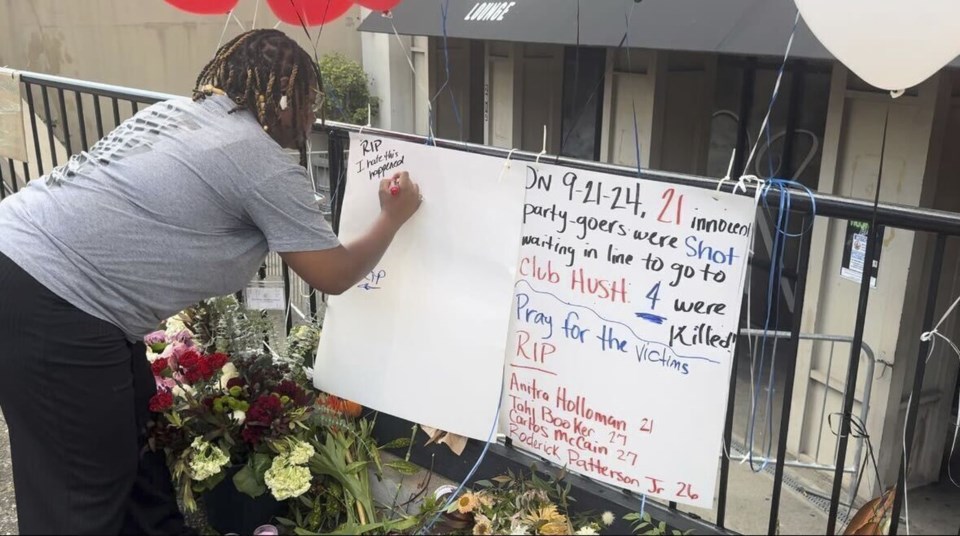 LOUNGE
RIP
I hate this
happened
RIP
ON 9-21-24, 21 innocent
party-goers were Shot
waiting in line to go to
Club HUSH. 4 were
Killed
Pray for the victims
RIP
Anitra Holloman 21
Tahj Booker 27
Carlos McCain 27
Roderick Patterson Jr 26